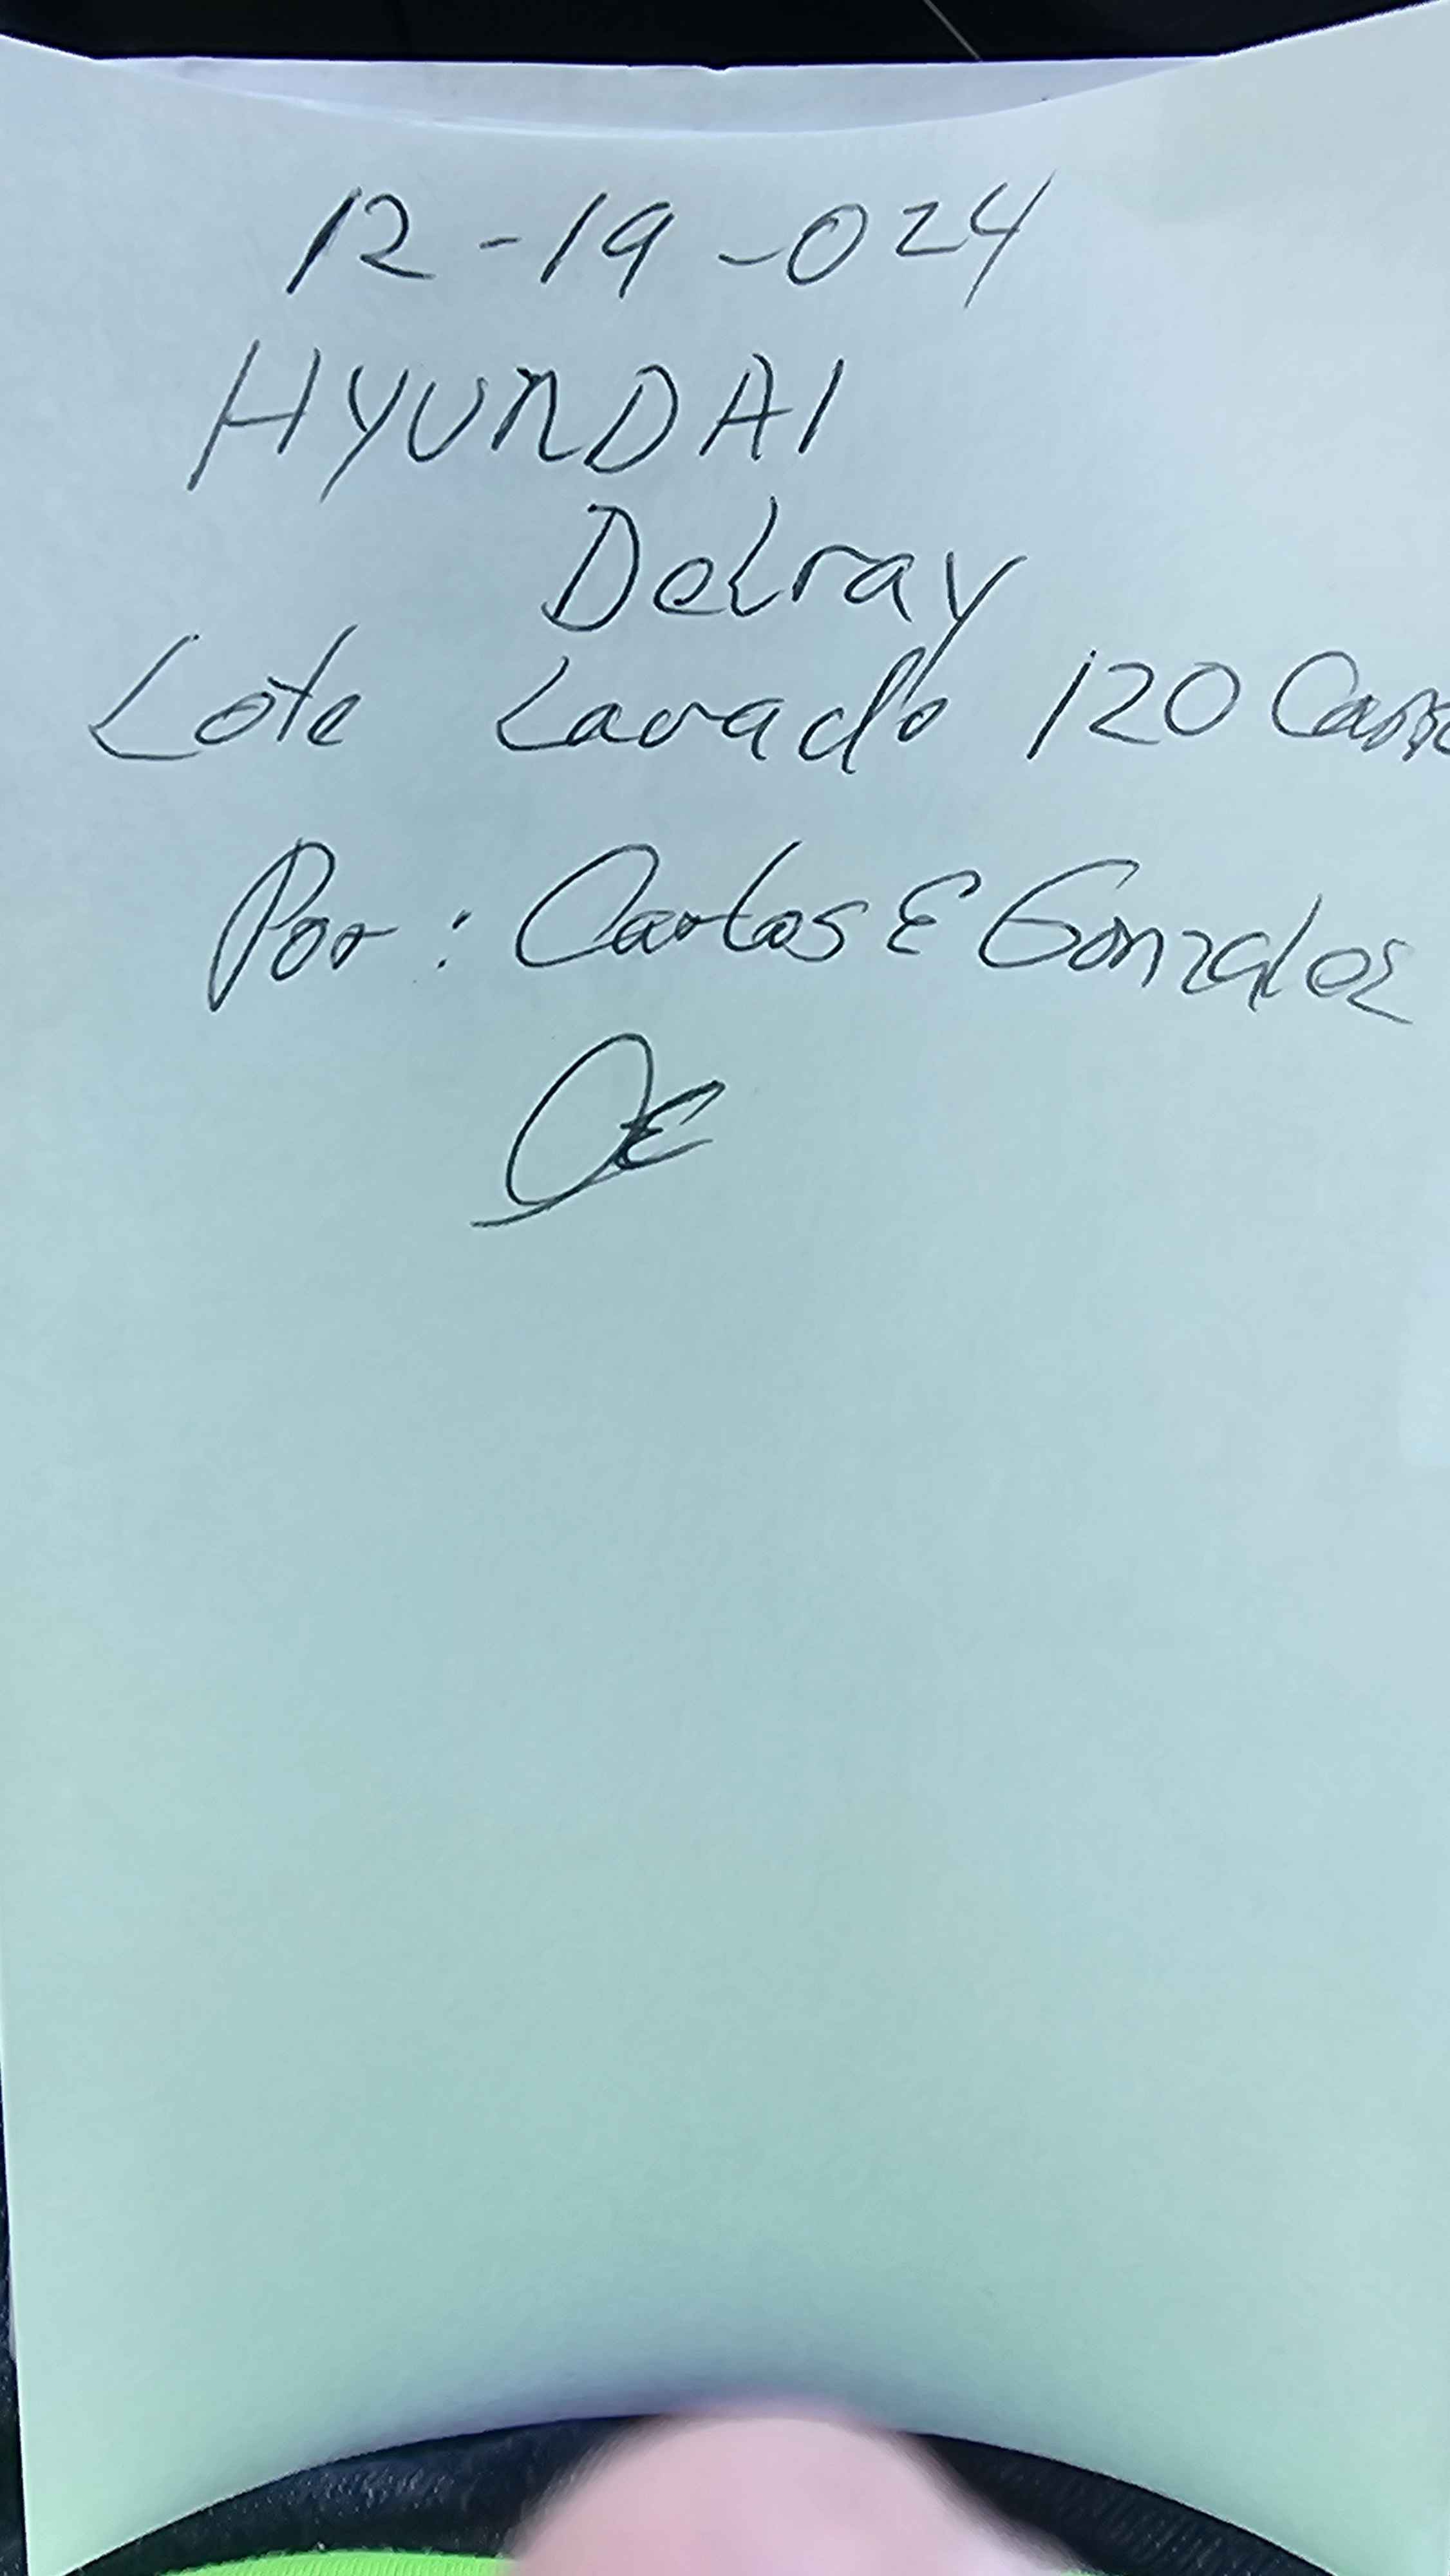 12-19-024
HYUNDAI
Delray
Lote Lavado 120
Por: Carlos E Gonzalez